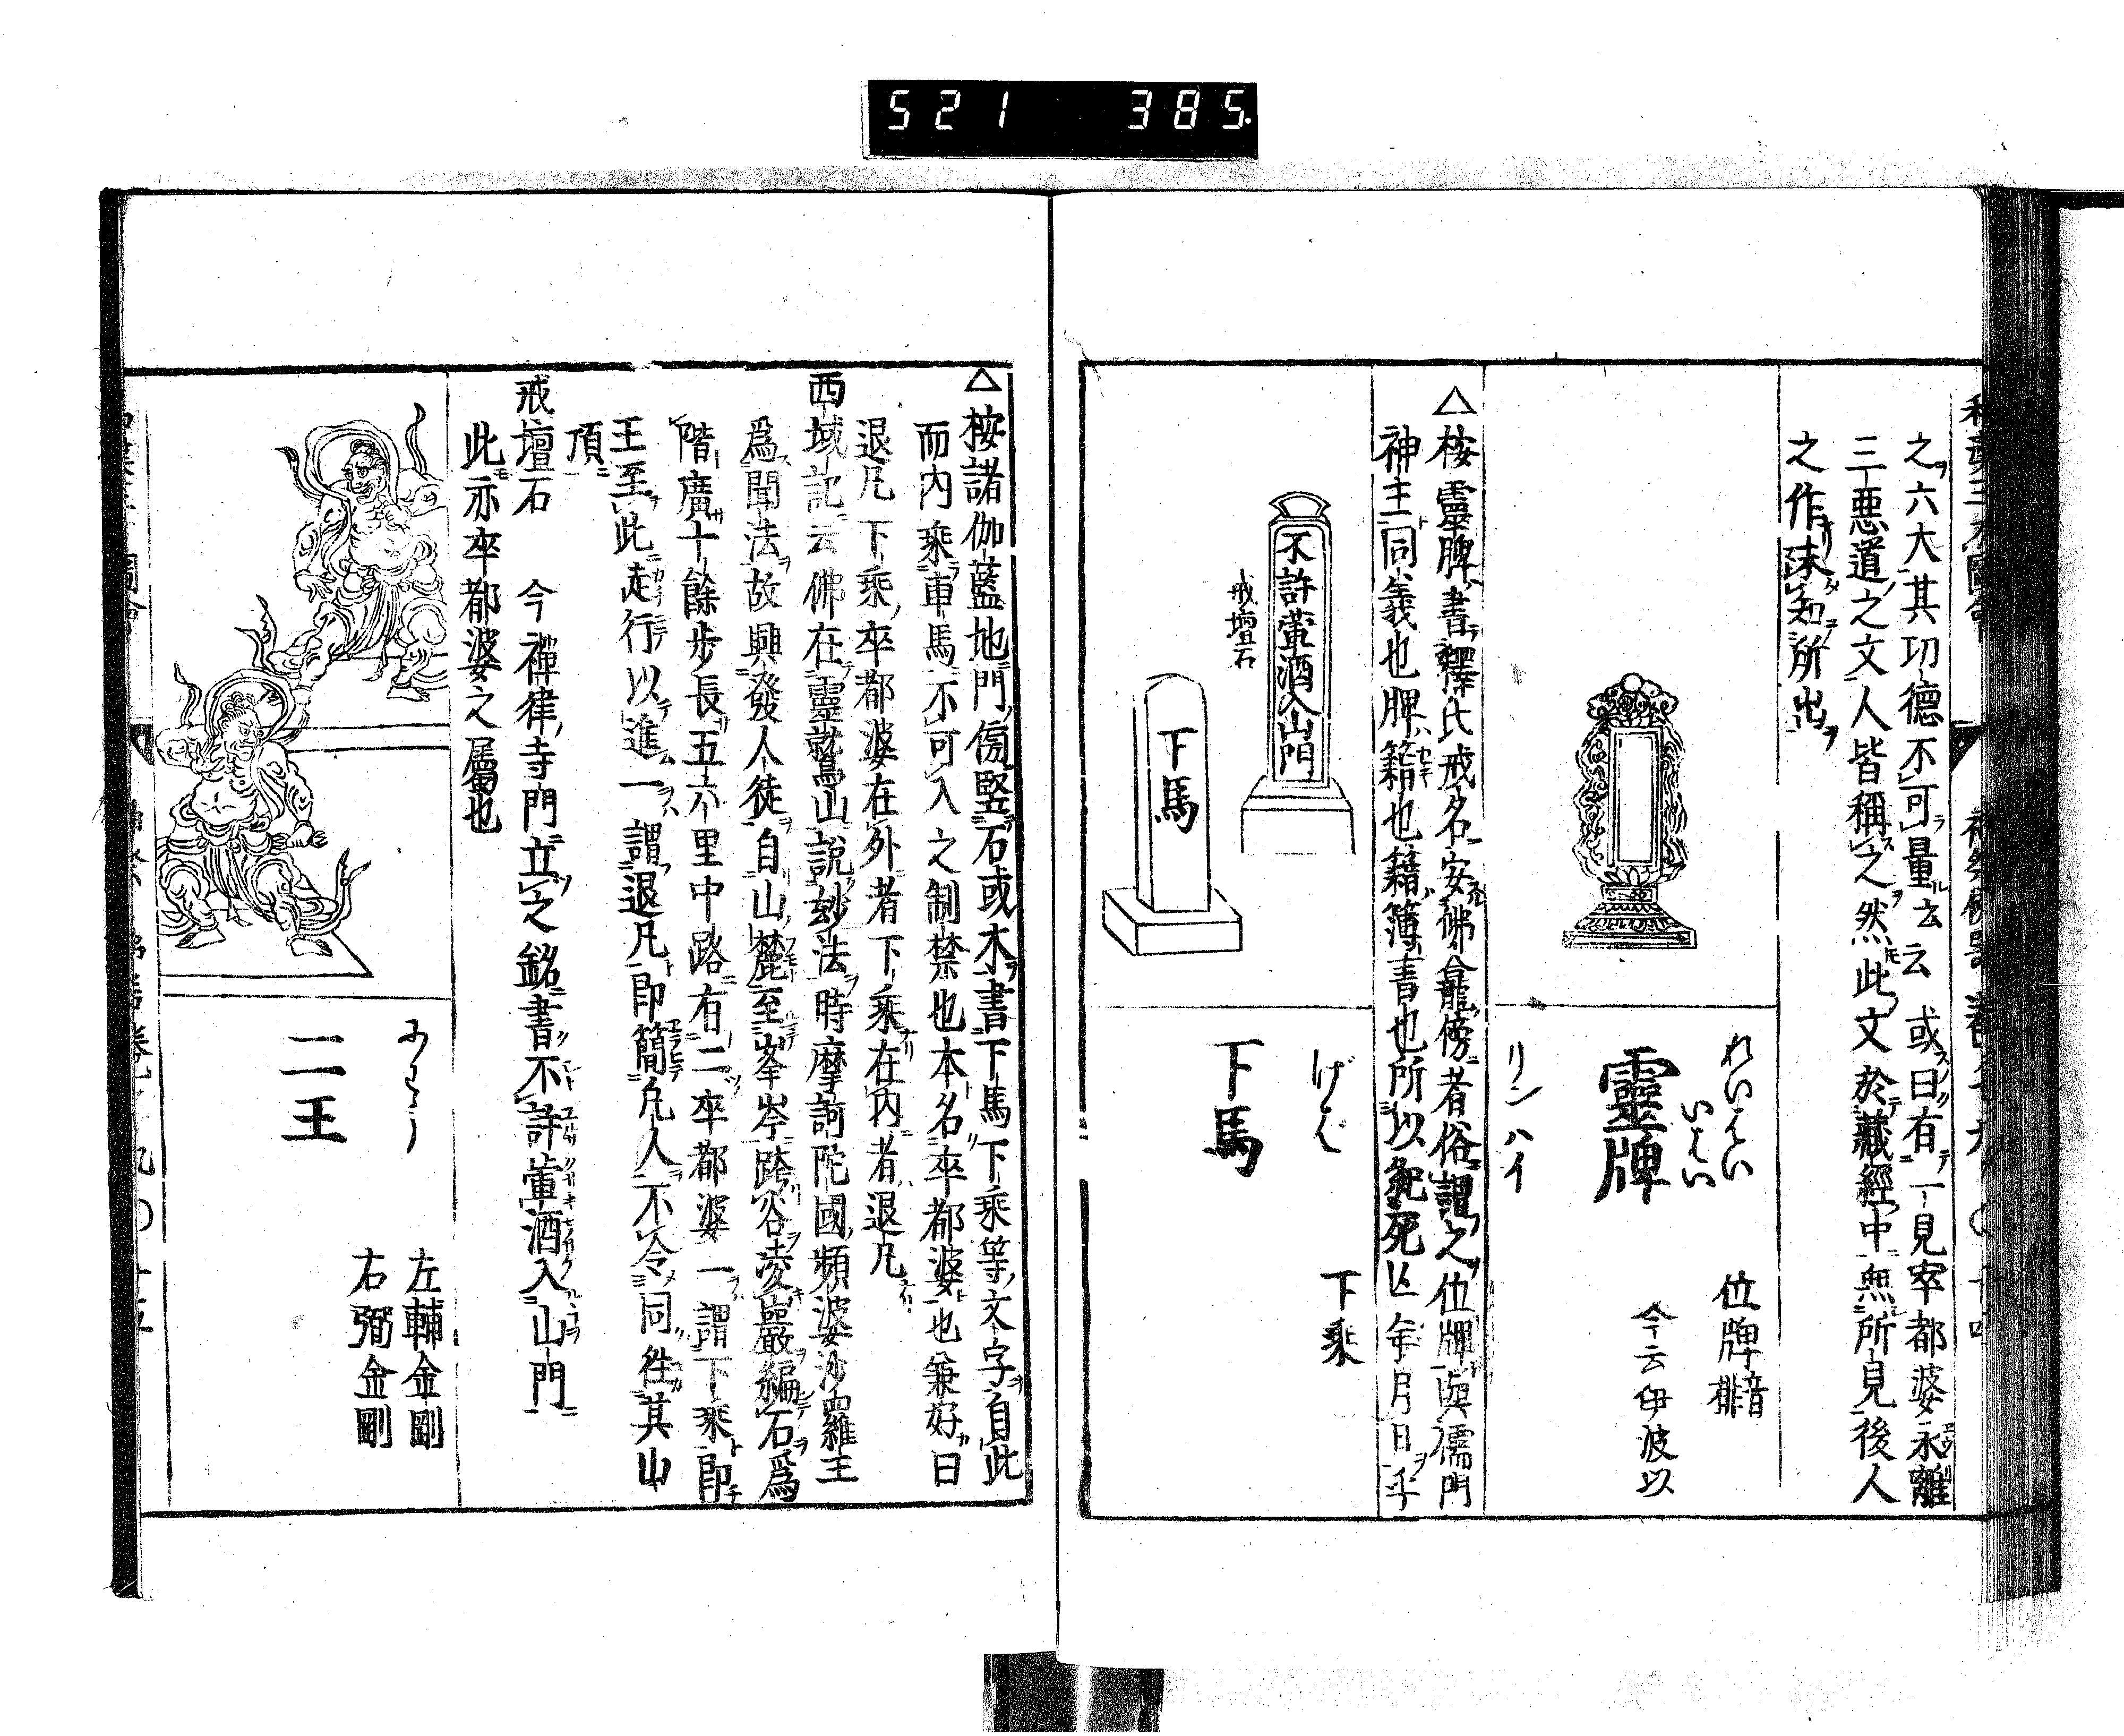 521 385.
之六大其功德不可量云云或曰有一見窣都婆永離
三惡道之文人皆稱之然此文於藏經中無所見後人
之作未知所出
れいはい
いはい
靈牌
リンハイ
位牌音排
今云伊波以
△按靈牌書釋氏戒名安佛龕傍者俗謂之位牌與儒門
神主同義也牌籍也籍簿書也所以紀死亡年月日乎
不許葷酒入山門
戒壇石
下馬
げば
下馬
下乘
△按諸伽藍地門傍竪石或木書下馬下乘等文字自此
而內乘車馬不可入之制禁也本名卒都婆也兼好曰
退凡下乘卒都婆在外者下乘在內者退凡
西域記云佛在靈鷲山說妙法時摩訶陀國頻婆沙羅王
爲聞法故興發人徒自山麓至峯岑跨谷凌巖編石爲
階廣十餘步長五六里中路右二卒都婆一謂下乘即
王至此徒行以進一謂退凡即簡凡人不令同徃其山
頂
戒壇石 今禪律寺門立之銘書不許葷酒入山門
此亦卒都婆之屬也
にわう
二王
左輔金剛
右弼金剛